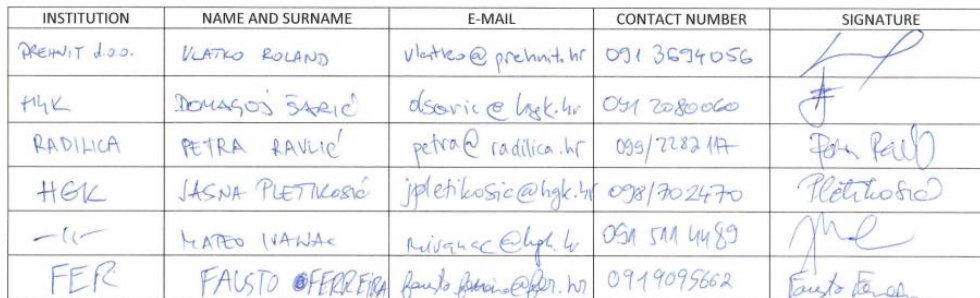 INSTITUTION NAME AND SURNAME E-MAIL CONTACT NUMBER SIGNATURE
PREHNIT d.o.o. VLATKO ROLAND vlatko@prehnit.hr 091 3694056
HGK DOMAGOJ ŠARIĆ dsaric@hgk.hr 091 2080060
RADILICA PETRA RAVLIĆ petra@radilica.hr 099/2282117
HGK JASNA PLETIKOSIĆ jpletikosic@hgk.hr 098/702470 Pletikosić
-||- MATEO IVANAC mivanac@hgk.hr 091 511 4489
FER FAUSTO FERREIRA fausto.ferreira@fer.hr 0919095662